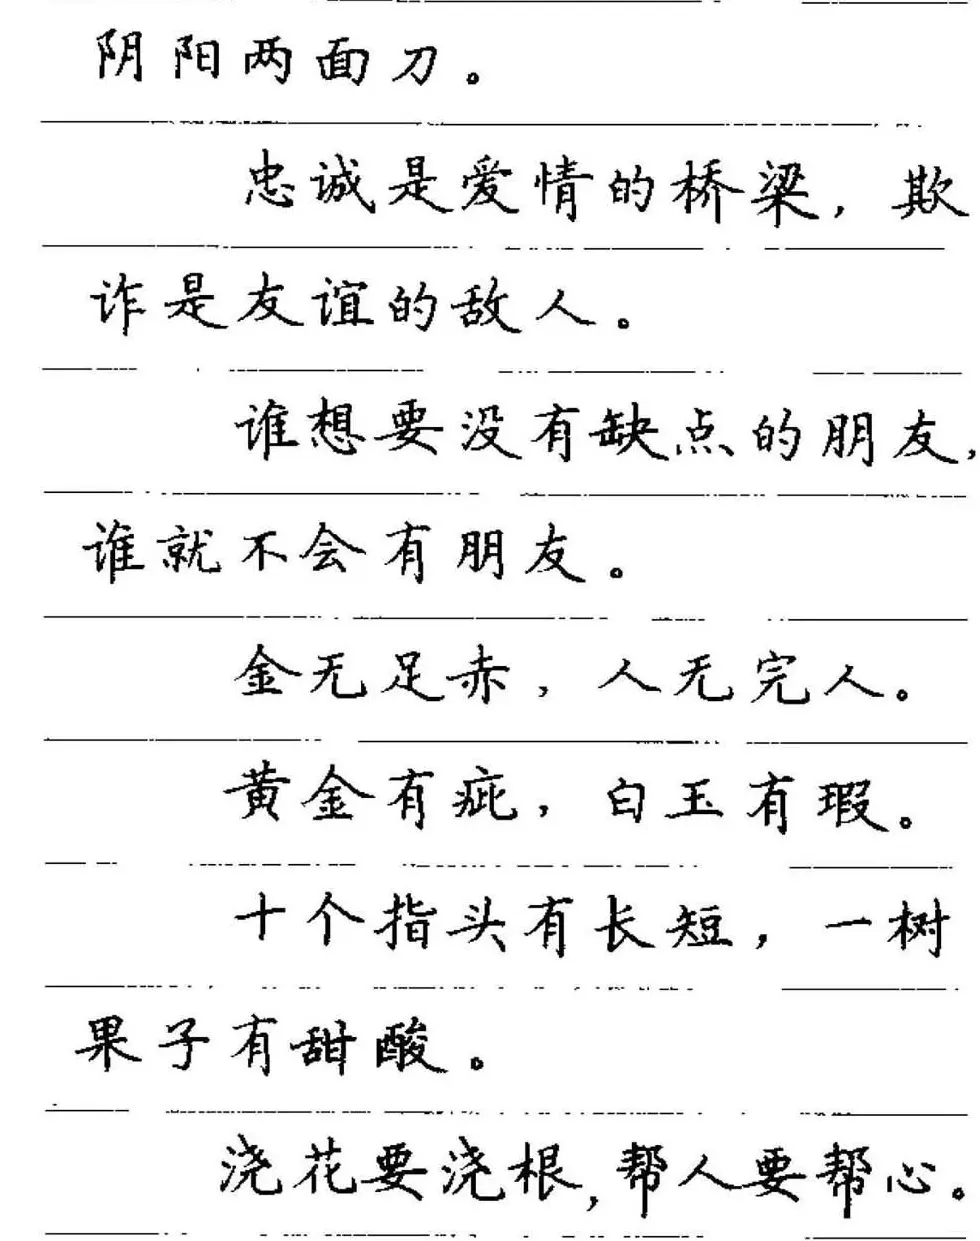 阴阳两面刀。
忠诚是爱情的桥梁，欺
诈是友谊的敌人。
谁想要没有缺点的朋友，
谁就不会有朋友。
金无足赤，人无完人。
黄金有疵，白玉有瑕。
十个指头有长短，一树
果子有甜酸。
浇花要浇根，帮人要帮心。